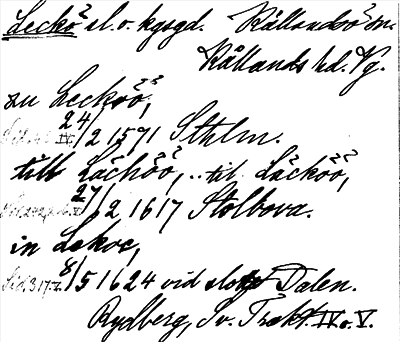 Leckö sl. o. kgsgd. Kållandsö sn.
Kållands hd. Vg.
zu Lecköö,
24/2 1571 Sthlm.
till Lächöö, .. til Läcköö,
27/2 1617 Stolbova.
in Lekoe,
Sid. 317. 8/5 1624 vid slottet Dalen.
Rydberg, Sv. Trakt. IV o. V.